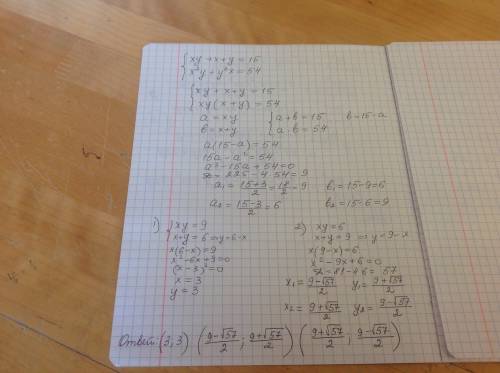 { xy + x + y = 15
{ x²y + y²x = 54
{ xy + x + y = 15
{ xy(x + y) = 54
a = xy { a + b = 15 b = 15 - a
b = x + y { a · b = 54
a(15 - a) = 54
15a - a² = 54
a² - 15a + 54 = 0
D = 225 - 4 · 54 = 9
a₁ = (15+3)/2 = 18/2 = 9 b₁ = 15 - 9 = 6
a₂ = (15-3)/2 = 6 b₂ = 15 - 6 = 9
1) { xy = 9
{ x + y = 6 ⇒ y = 6 - x
x(6 - x) = 9
x² - 6x + 9 = 0
(x - 3)² = 0
x = 3
y = 3
2) xy = 6
x + y = 9 ⇒ y = 9 - x
x(9 - x) = 6
x² - 9x + 6 = 0
D = 81 - 4·6 = 57
x₁ = (9-√57)/2 y₁ = (9+√57)/2
x₂ = (9+√57)/2 y₂ = (9-√57)/2
Ответ: (3, 3) ((9-√57)/2 ; (9+√57)/2) ((9+√57)/2 ; (9-√57)/2)